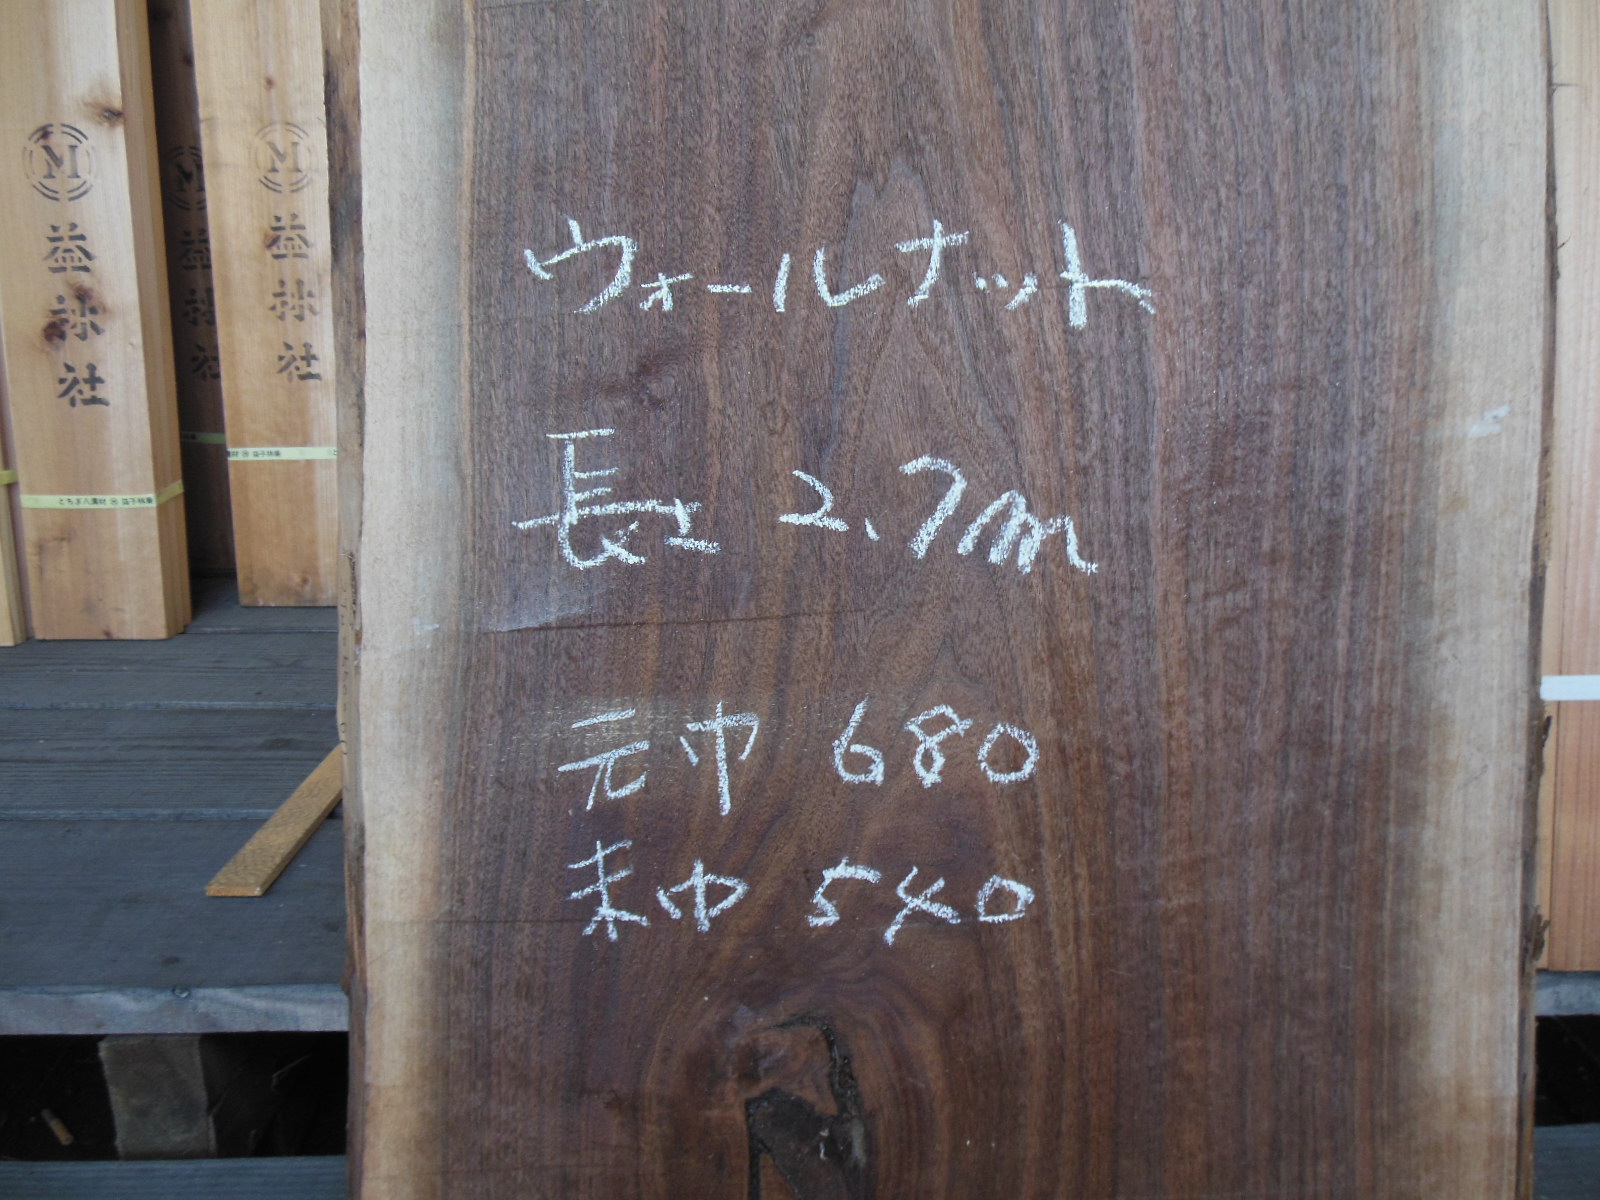 ウォールナット
長さ 2.7m
元巾 680
末巾 540
M
益林社
M
益林社